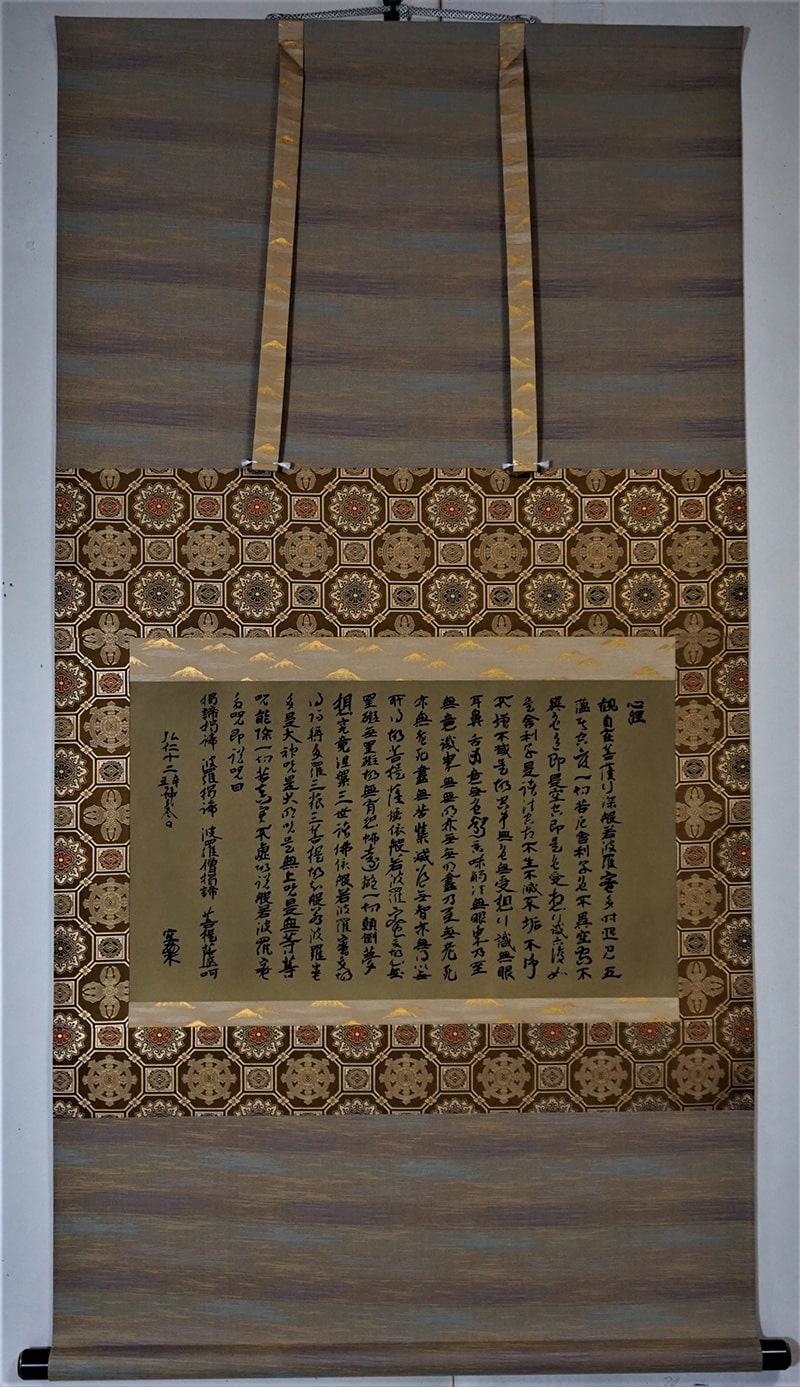 心經
觀自在菩薩行深般若波羅蜜多時照見五
蘊皆空度一切苦厄舍利子色不異空空不
異色色即是空空即是色受想行識亦復如
是舍利子是諸法空相不生不滅不垢不浄
不增不減是故空中無色無受想行識無眼
耳鼻舌身意無色聲香味觸法無眼界乃至
無意識界無無明亦無無明盡乃至無老死
亦無老死盡無苦集滅道無智亦無得以無
所得故菩提薩埵依般若波羅蜜多故心無
罣礙無罣礙故無有恐怖遠離一切顛倒夢
想究竟涅槃三世諸佛依般若波羅蜜多故
得阿耨多羅三藐三菩提故知般若波羅蜜
多是大神咒是大明咒是無上咒是無等等
咒能除一切苦真實不虛故説般若波羅蜜
多咒即説咒曰
揭諦揭諦 波羅揭諦 波羅僧揭諦 菩提薩婆訶
弘仁十二年